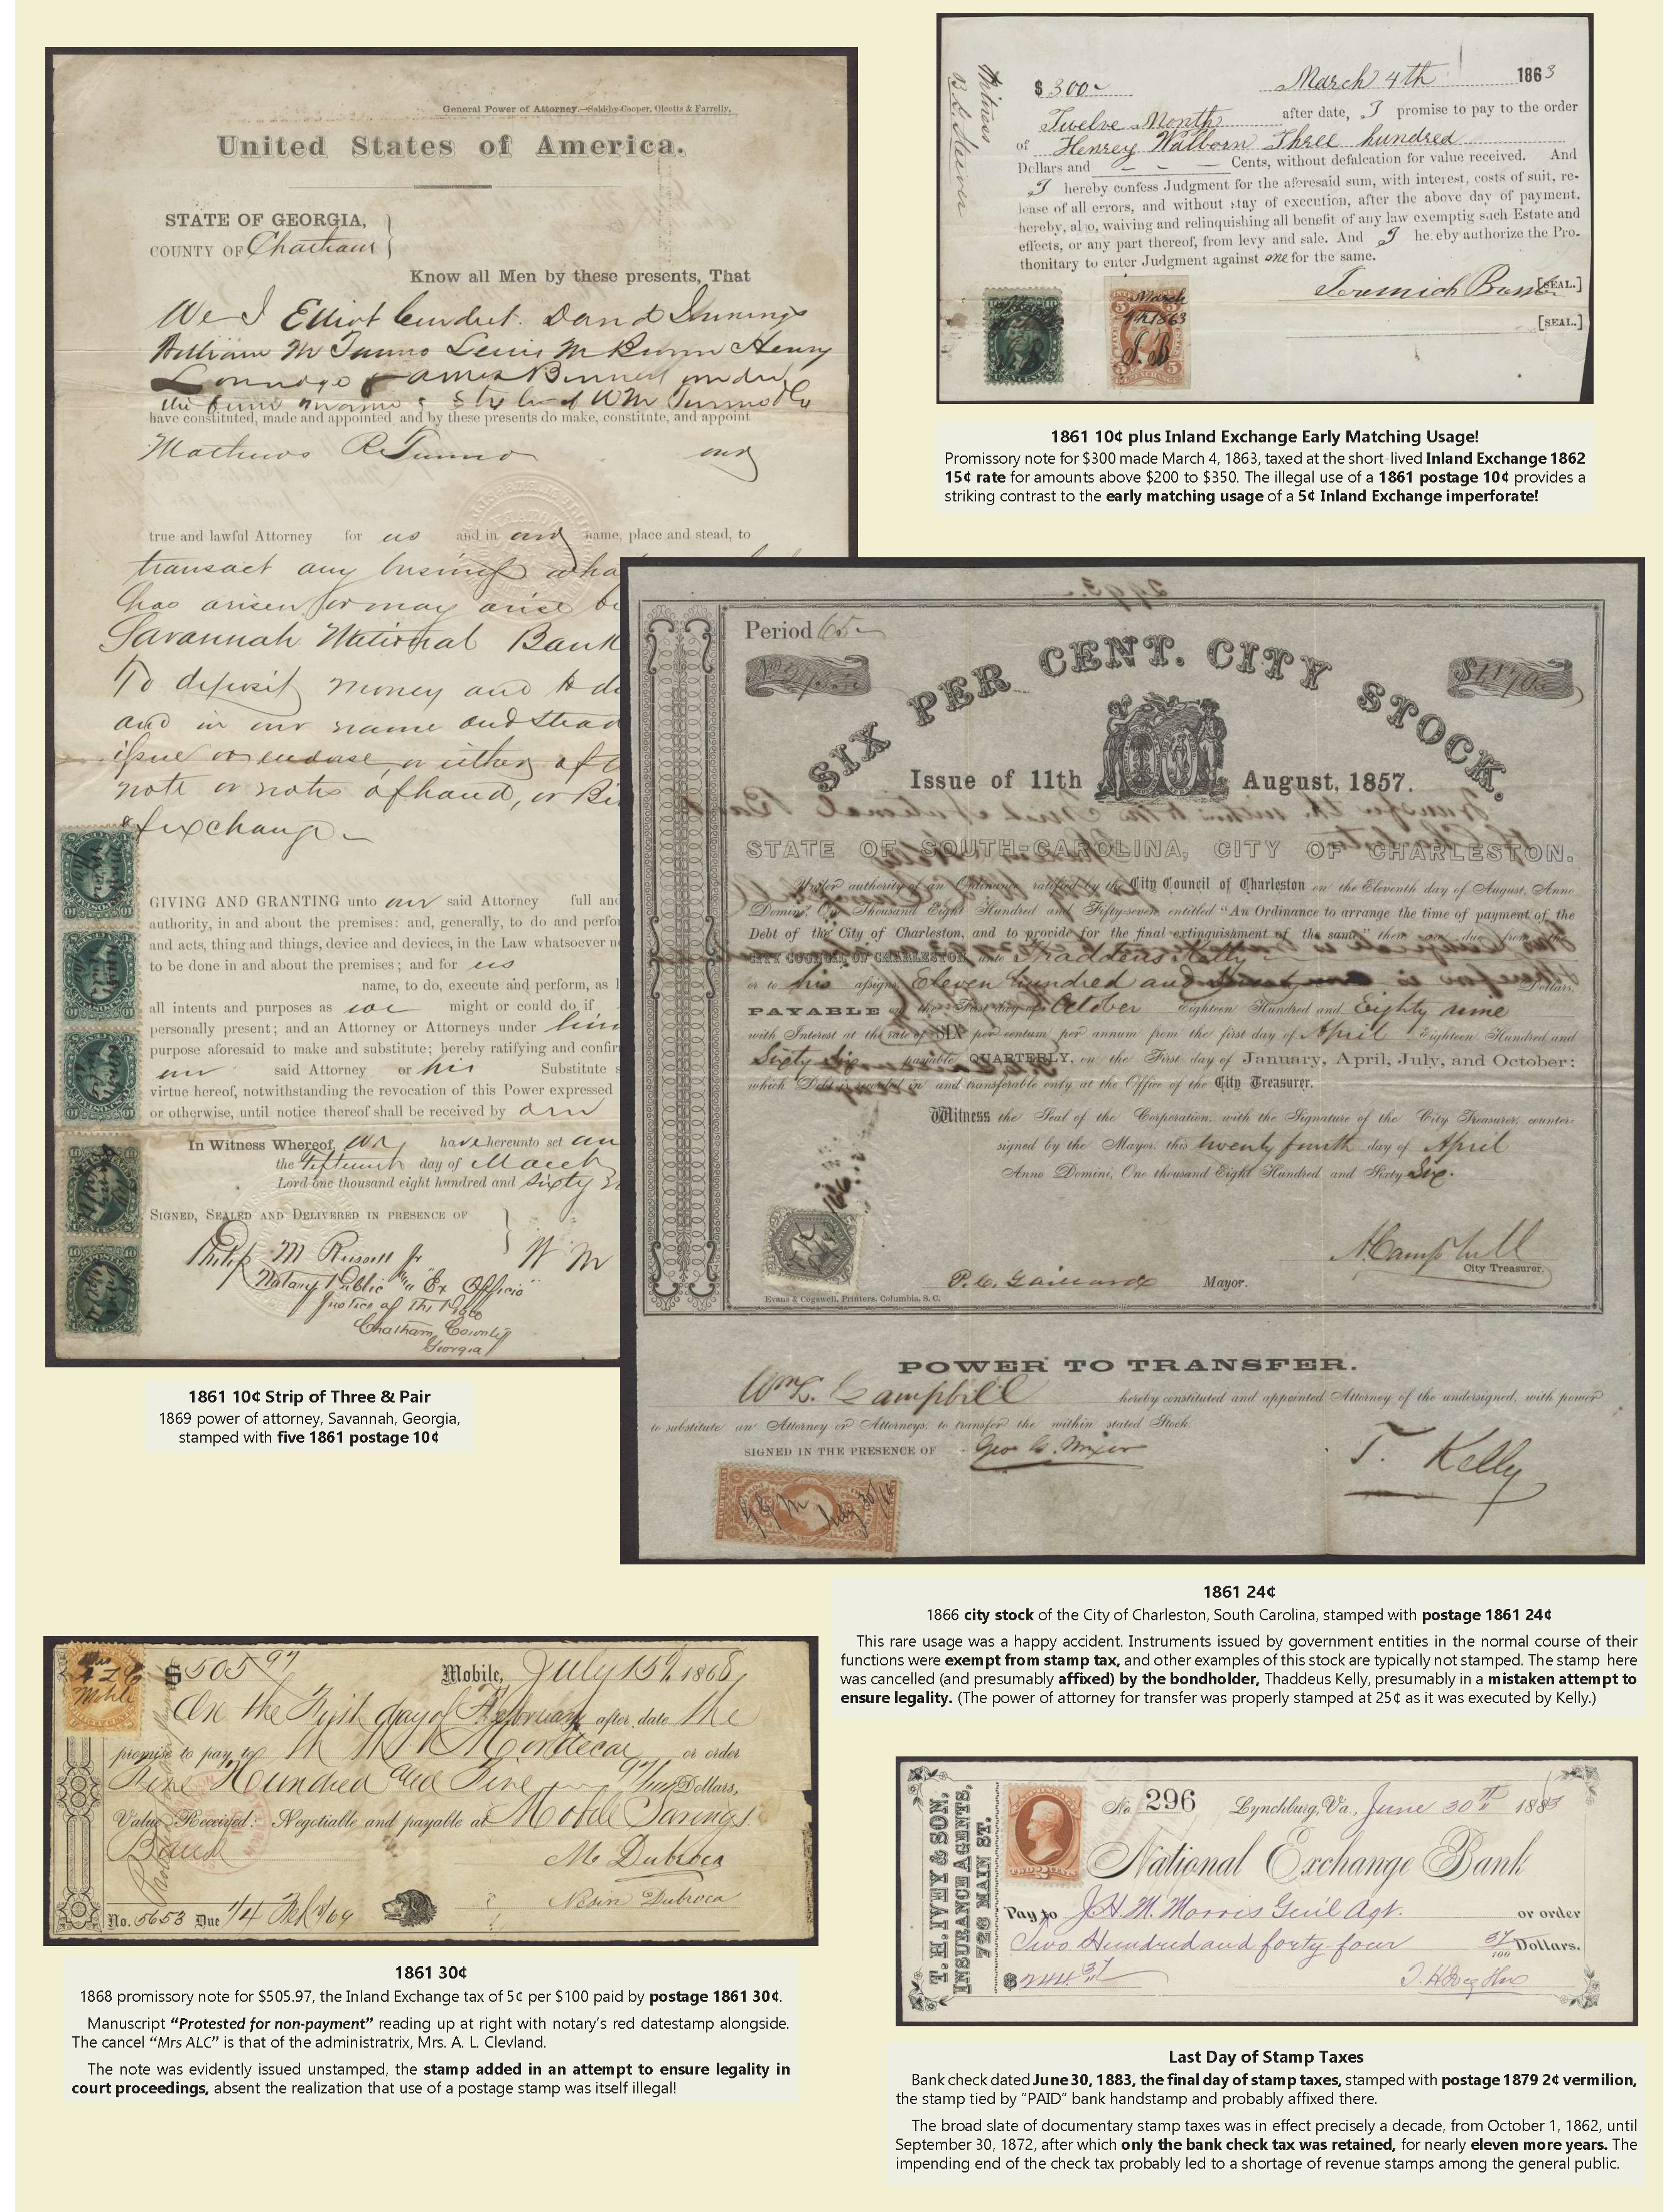 General Power of Attorney.—Sold by Cooper, Olcotts & Farrelly.
United States of America.
STATE OF GEORGIA,
COUNTY OF Chatham
Know all Men by these presents, That
have constituted, made and appointed, and by these presents do make, constitute, and appoint
true and lawful Attorney for us and in our name, place and stead, to
transact any business
has arisen or may arise
Savannah National Bank
To deposit money and to
and in our name and stead
issue or endorse, or either of
note or notes of hand, or
of exchange
GIVING AND GRANTING unto our said Attorney full and
authority, in and about the premises: and, generally, to do and perfor
and acts, thing and things, device and devices, in the Law whatsoever n
to be done in and about the premises; and for us
name, to do, execute and perform, as l
all intents and purposes as we might or could do, if
personally present; and an Attorney or Attorneys under him
purpose aforesaid to make and substitute; hereby ratifying and confir
our said Attorney or his Substitute s
virtue hereof, notwithstanding the revocation of this Power expressed
or otherwise, until notice thereof shall be received by
In Witness Whereof, we have hereunto set our
the fifteenth day of March
Lord one thousand eight hundred and sixty
SIGNED, SEALED AND DELIVERED IN PRESENCE OF
Philip M Russell Jr
Notary Public "Ex Officio"
Justice of the Peace
Chatham County
Georgia
W M
1861 10¢ Strip of Three & Pair
1869 power of attorney, Savannah, Georgia,
stamped with five 1861 postage 10¢
$ 300 March 4th 1863
Twelve Month after date, I promise to pay to the order
of Henrey Walborn Three hundred
Dollars and Cents, without defalcation for value received. And
I hereby confess Judgment for the aforesaid sum, with interest, costs of suit, re-
lease of all errors, and without stay of execution, after the above day of payment,
hereby, also, waiving and relinquishing all benefit of any law exemptig such Estate and
effects, or any part thereof, from levy and sale. And I he.eby authorize the Pro-
thonitary to enter Judgment against me for the same.
[SEAL.]
[SEAL.]
Witness
March
4th 1863
J. B
1861 10¢ plus Inland Exchange Early Matching Usage!
Promissory note for $300 made March 4, 1863, taxed at the short-lived Inland Exchange 1862
15¢ rate for amounts above $200 to $350. The illegal use of a 1861 postage 10¢ provides a
striking contrast to the early matching usage of a 5¢ Inland Exchange imperforate!
Period 65
SIX PER CENT. CITY STOCK.
$1170
Issue of 11th August, 1857.
STATE OF SOUTH-CAROLINA, CITY OF CHARLESTON.
Under authority of an Ordinance ratified by the City Council of Charleston on the Eleventh day of August, Anno
Domini, One Thousand Eight Hundred and Fifty-seven, entitled "An Ordinance to arrange the time of payment of the
Debt of the City of Charleston, and to provide for the final extinguishment of the same" there are due from the
CITY COUNCIL OF CHARLESTON unto Thaddeus Kelly
or to his assigns Eleven hundred and Dollars,
PAYABLE on the First day of October Eighteen Hundred and Eighty nine
with Interest at the rate of SIX per centum per annum from the first day of April Eighteen Hundred and
Sixty Six payable QUARTERLY, on the First day of January, April, July, and October:
which Debt is recorded in and transferable only at the Office of the City Treasurer.
Witness the Seal of the Corporation, with the Signature of the City Treasurer, counter-
signed by the Mayor, this twenty fourth day of April
Anno Domini, One thousand Eight Hundred and Sixty-Six.
P. C. Gaillard Mayor.
City Treasurer.
Evans & Cogswell, Printers, Columbia, S. C.
POWER TO TRANSFER.
Wm L. Campbell hereby constituted and appointed Attorney of the undersigned, with power
to substitute an Attorney or Attorneys, to transfer the within stated Stock.
SIGNED IN THE PRESENCE OF
T. Kelly
July 30
1861 24¢
1866 city stock of the City of Charleston, South Carolina, stamped with postage 1861 24¢
This rare usage was a happy accident. Instruments issued by government entities in the normal course of their
functions were exempt from stamp tax, and other examples of this stock are typically not stamped. The stamp here
was cancelled (and presumably affixed) by the bondholder, Thaddeus Kelly, presumably in a mistaken attempt to
ensure legality. (The power of attorney for transfer was properly stamped at 25¢ as it was executed by Kelly.)
$505 97 Mobile, July 15th, 1868
On the First day of February after date the
promise to pay to or order
Five Hundred and Five 97/100 Dollars,
Value Received. Negotiable and payable at Mobile Savings
Bank
M Dubroca
No. 5653 Due 1/4 Feb/69
1861 30¢
1868 promissory note for $505.97, the Inland Exchange tax of 5¢ per $100 paid by postage 1861 30¢.
Manuscript "Protested for non-payment" reading up at right with notary's red datestamp alongside.
The cancel "Mrs ALC" is that of the administratrix, Mrs. A. L. Clevland.
The note was evidently issued unstamped, the stamp added in an attempt to ensure legality in
court proceedings, absent the realization that use of a postage stamp was itself illegal!
T. H. IVEY & SON,
INSURANCE AGENTS,
726 MAIN ST.
No. 296 Lynchburg, Va., June 30th 1883
National Exchange Bank
Pay to J. H. M. Morris Genl Agt. or order
Two Hundred and forty-four 37/100 Dollars.
$244.37
TWO 2 CENTS
Last Day of Stamp Taxes
Bank check dated June 30, 1883, the final day of stamp taxes, stamped with postage 1879 2¢ vermilion,
the stamp tied by "PAID" bank handstamp and probably affixed there.
The broad slate of documentary stamp taxes was in effect precisely a decade, from October 1, 1862, until
September 30, 1872, after which only the bank check tax was retained, for nearly eleven more years. The
impending end of the check tax probably led to a shortage of revenue stamps among the general public.